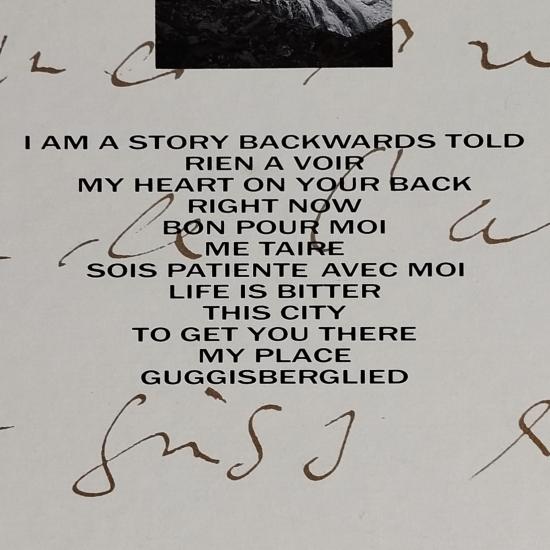 I AM A STORY BACKWARDS TOLD
RIEN A VOIR
MY HEART ON YOUR BACK
RIGHT NOW
BON POUR MOI
ME TAIRE
SOIS PATIENTE AVEC MOI
LIFE IS BITTER
THIS CITY
TO GET YOU THERE
MY PLACE
GUGGISBERGLIED